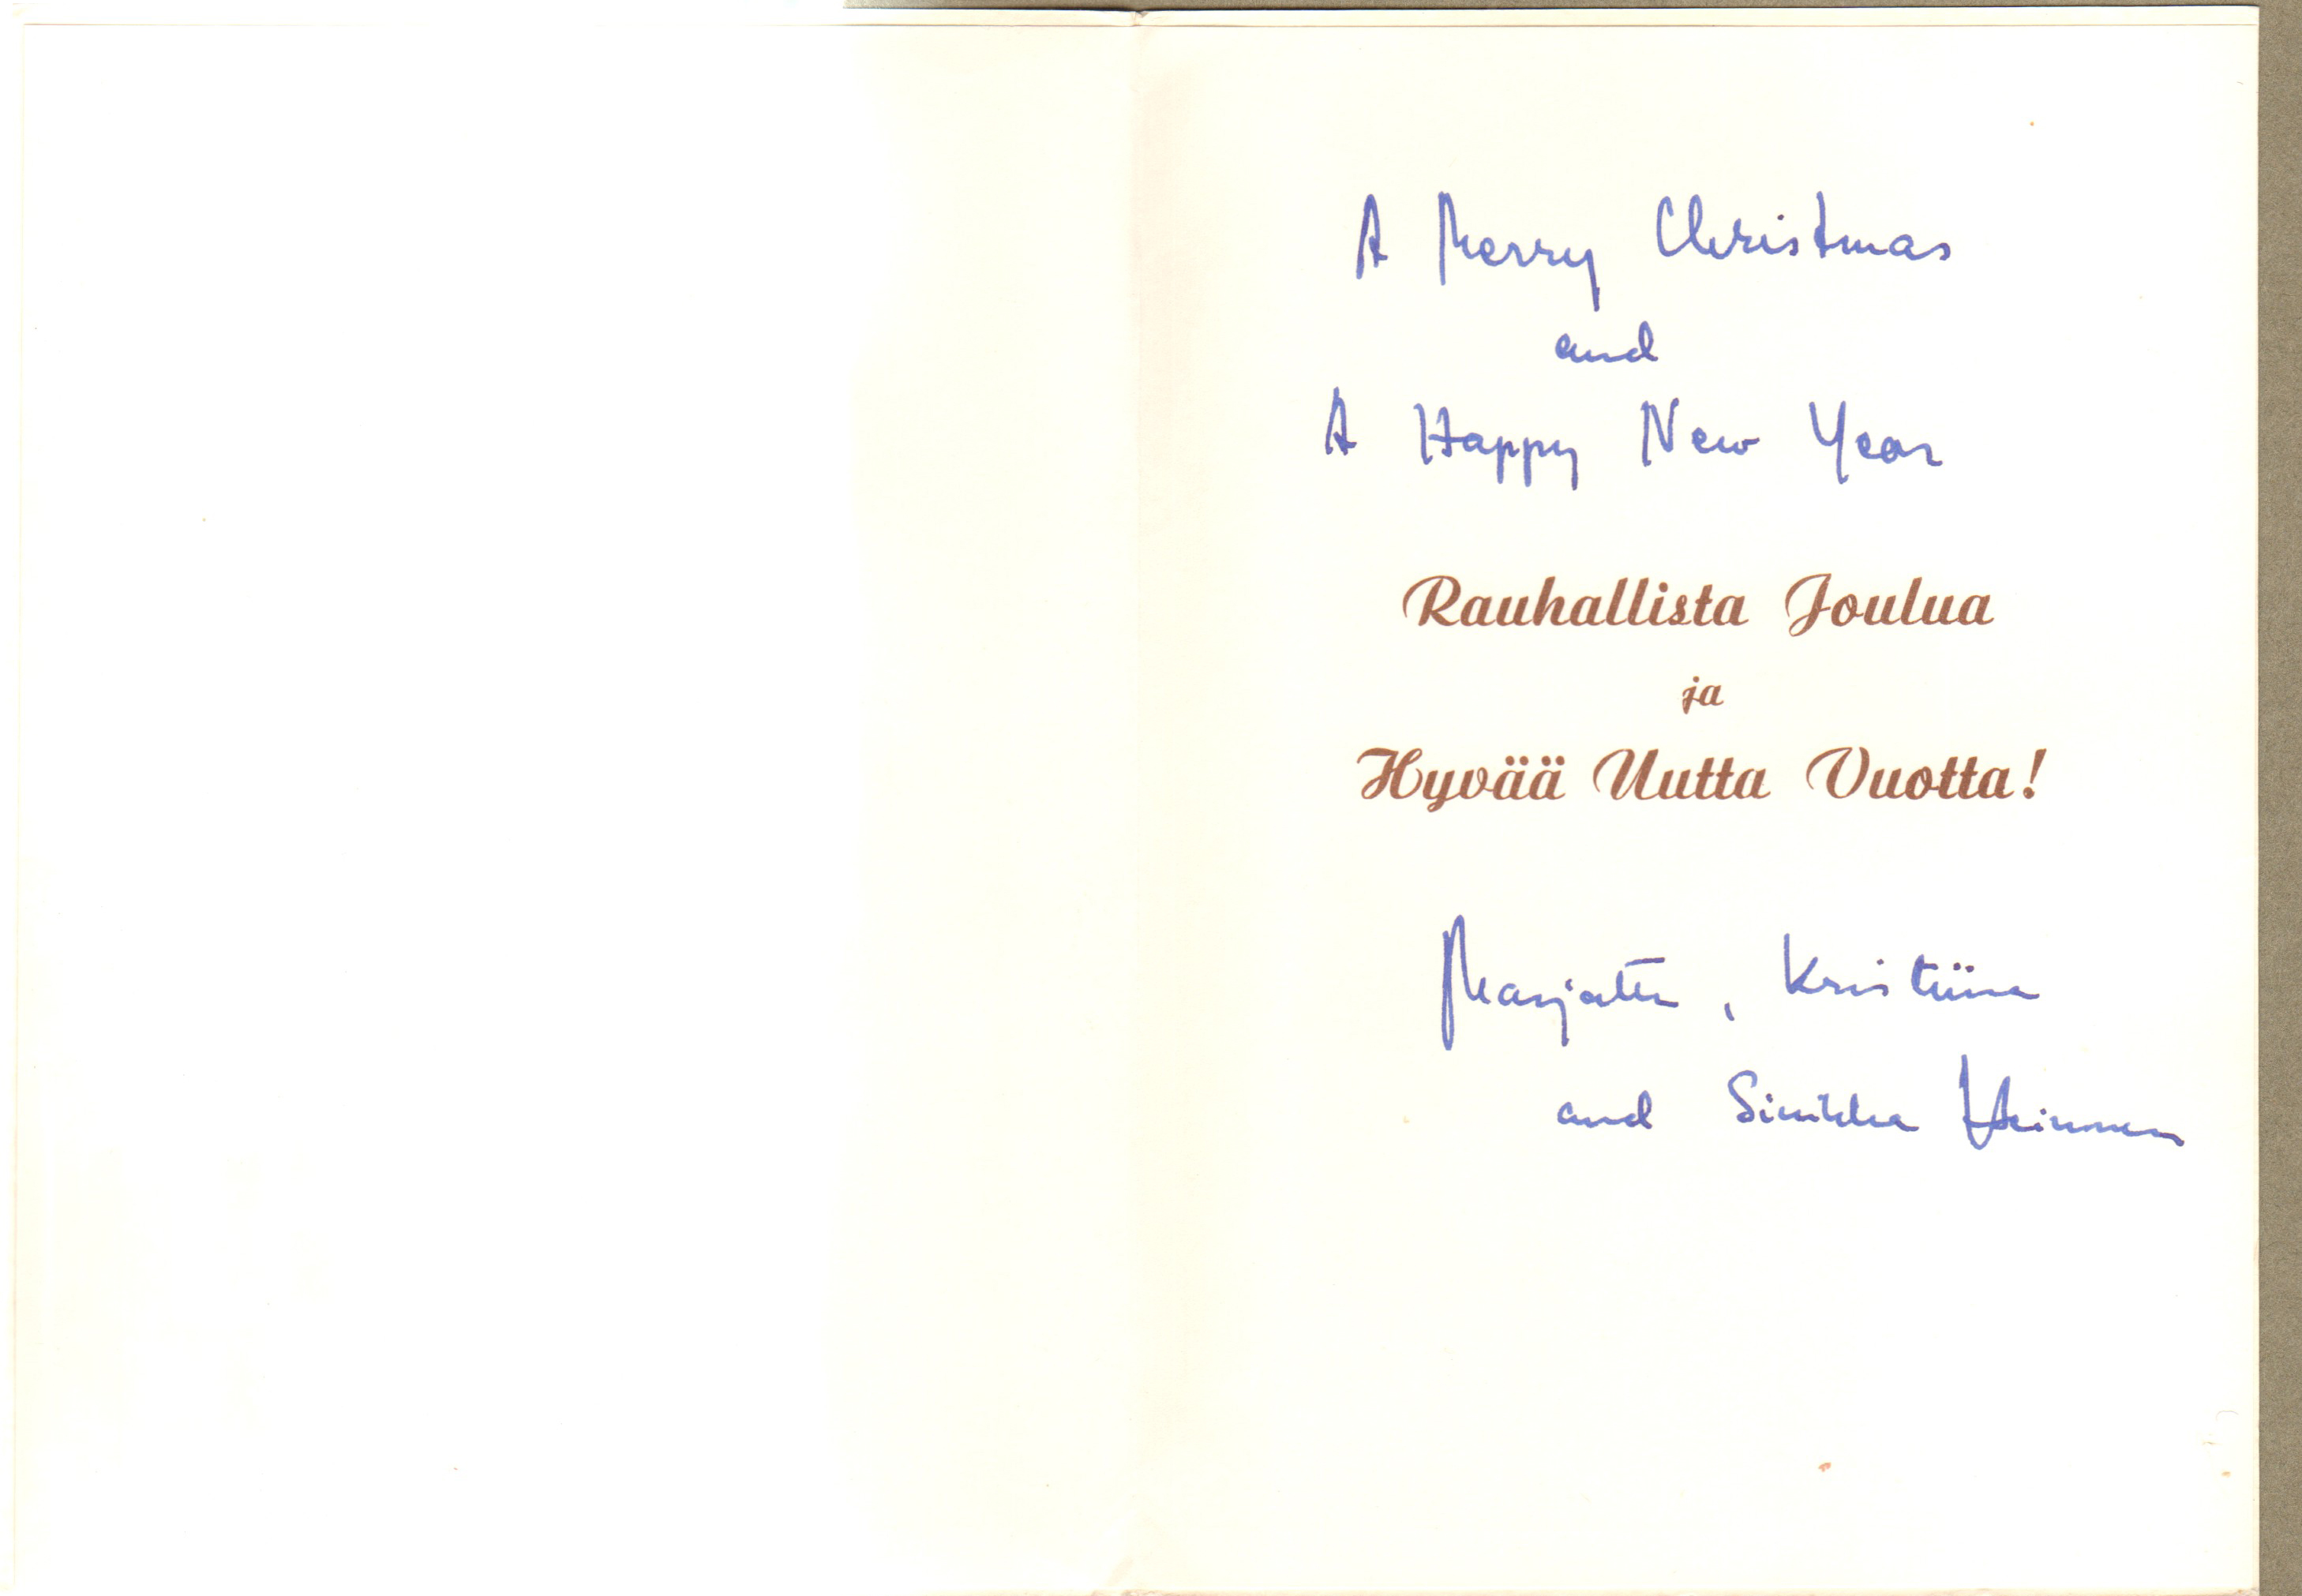 A Merry Christmas
and
A Happy New Year
Rauhallista Joulua
ja
Hyvää Uutta Vuotta!
Marjatta, Kristiina
and Sinikka